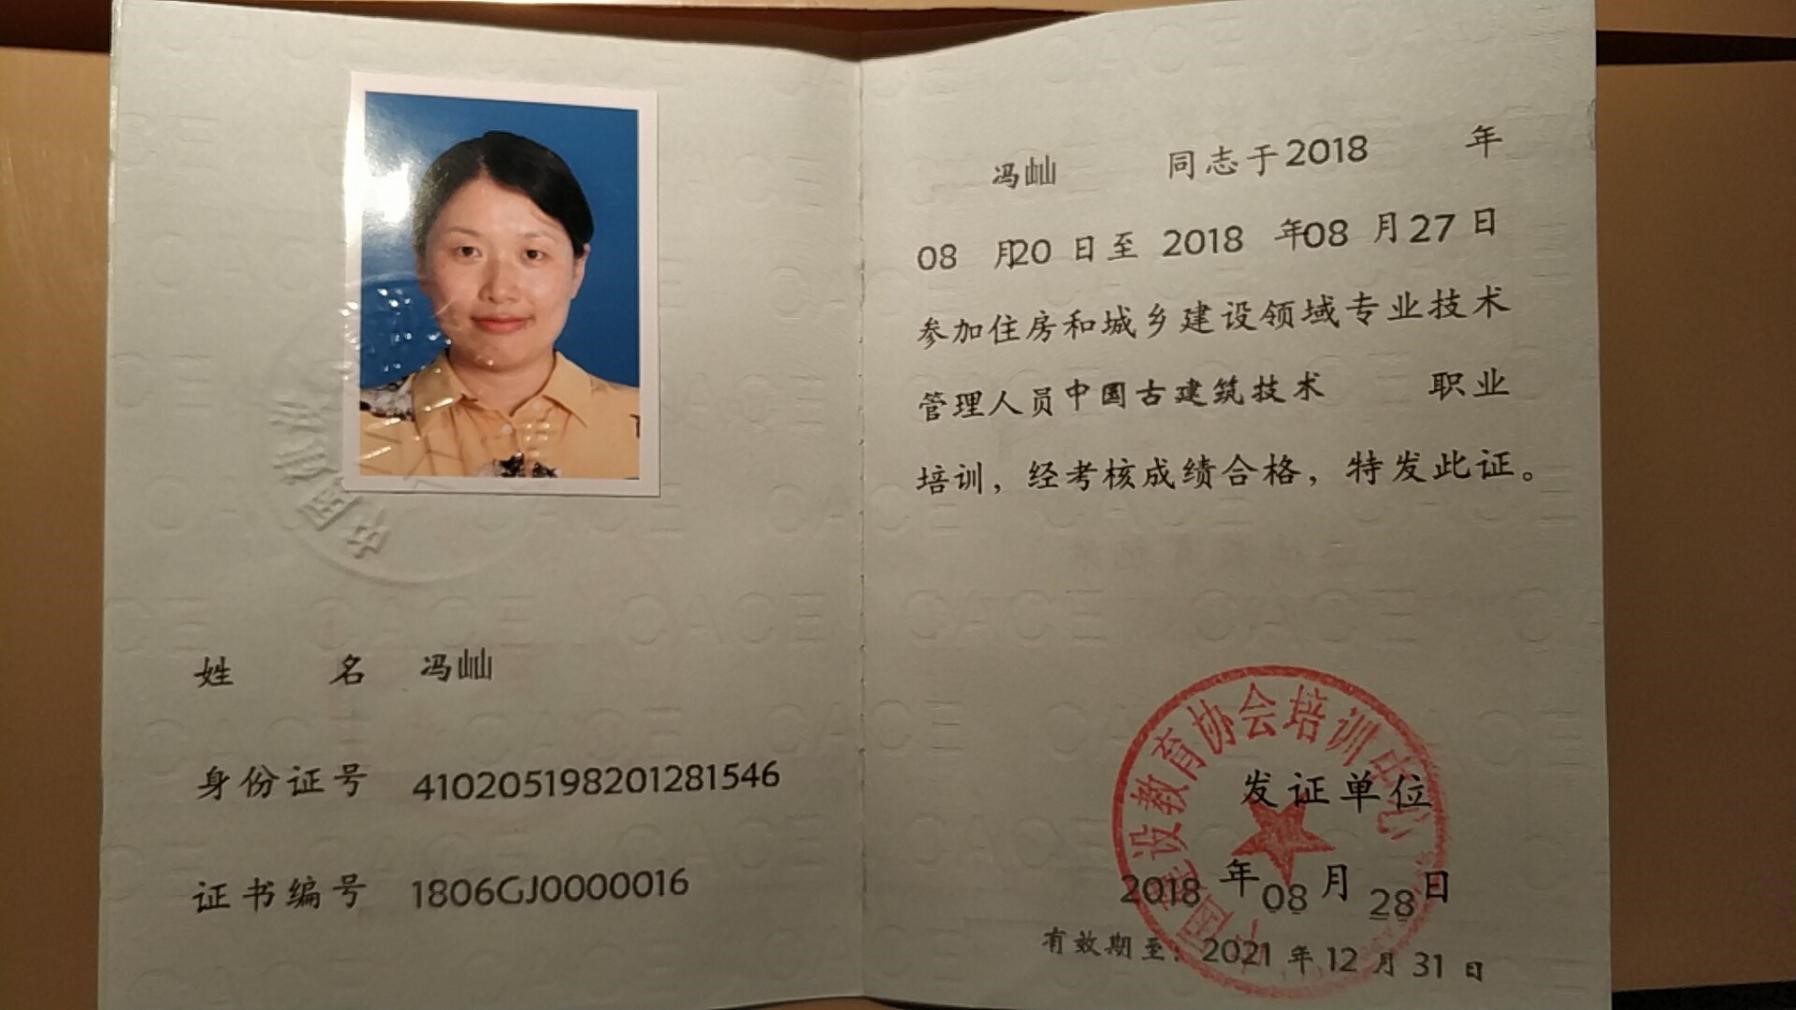 姓名 冯屾
身份证号 410205198201281546
证书编号 1806GJ0000016
冯屾 同志于2018 年
08 月20 日至 2018 年08 月27 日
参加住房和城乡建设领域专业技术
管理人员中国古建筑技术 职业
培训，经考核成绩合格，特发此证。
中国建设教育协会培训中心
发证单位
2018 年08 月 28日
有效期至：2021 年12 月 31 日